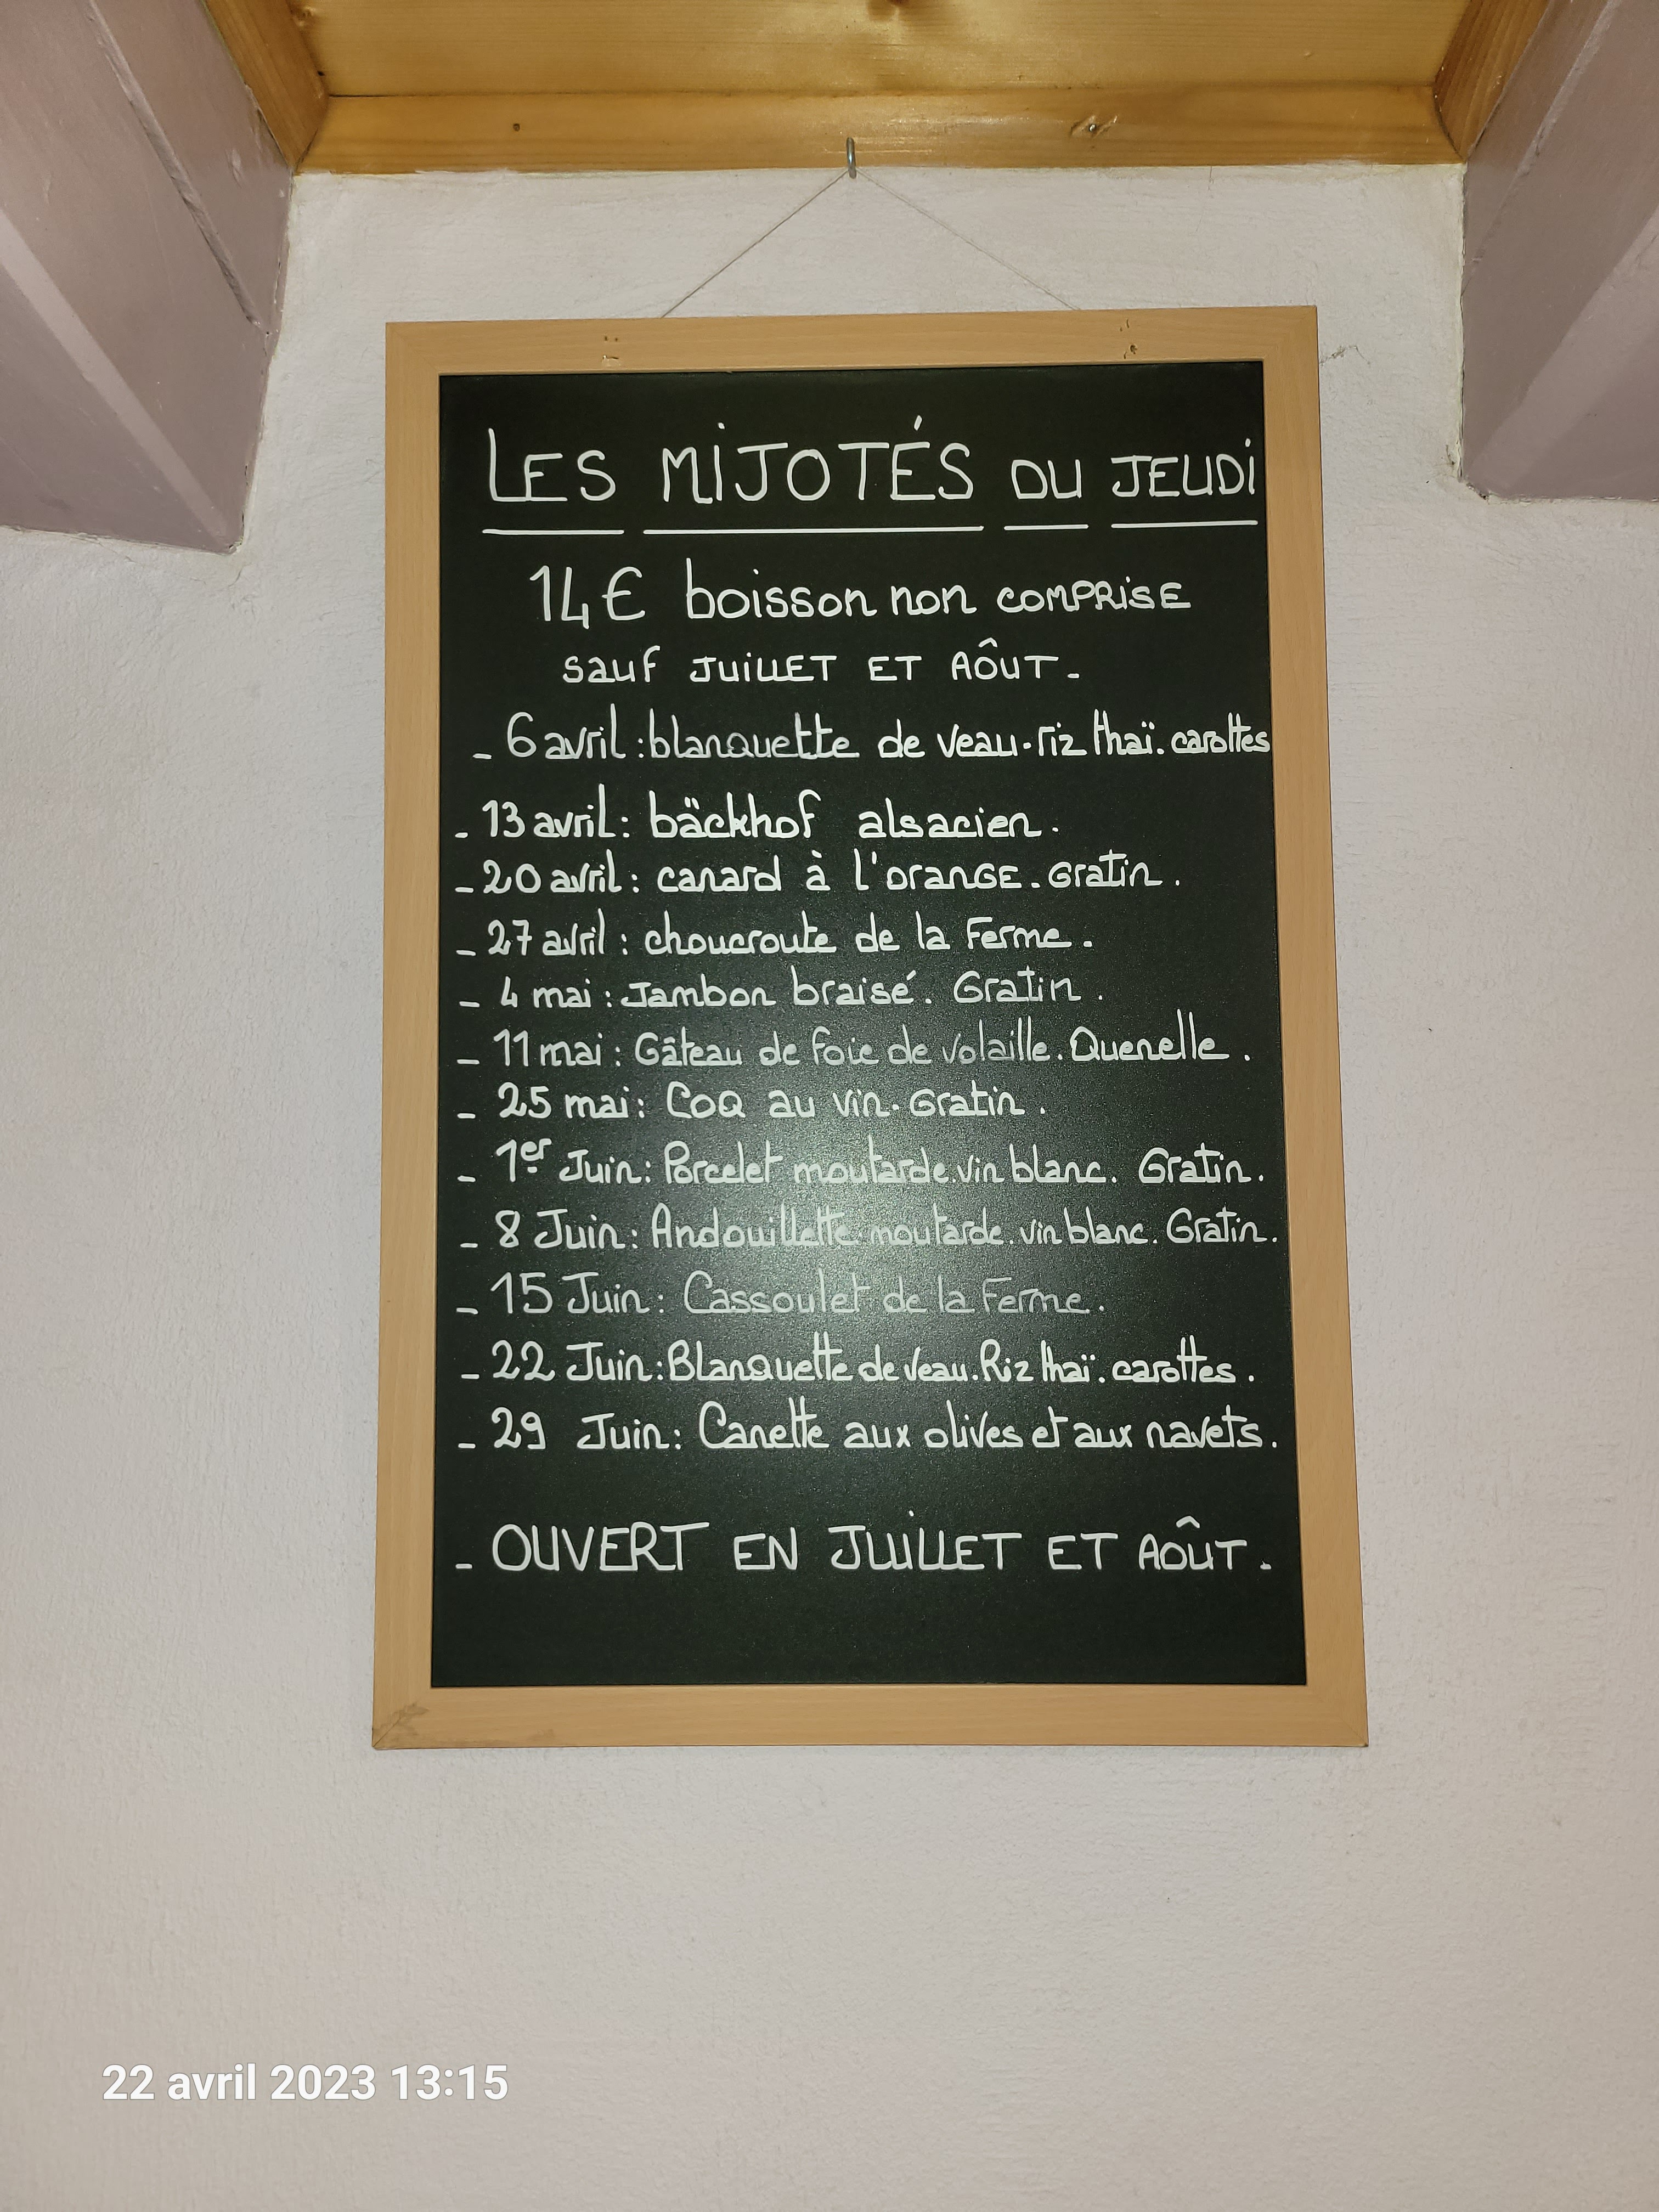 LES MIJOTÉS DU JEUDI
14€ boisson non COMPRISE
sauf JUILLET ET AOÛT -
- 6 avril : blanquette de veau. riz thaï. carottes
- 13 avril : bäckhof alsacien.
- 20 avril : canard à l'orange. Gratin.
- 27 avril : choucroute de la Ferme.
- 4 mai : Jambon braisé. Gratin.
- 11 mai : Gâteau de foie de volaille. Quenelle.
- 25 mai : Coq au vin. Gratin.
- 1er Juin : Porcelet moutarde. vin blanc. Gratin.
- 8 Juin : Andouillette. moutarde. vin blanc. Gratin.
- 15 Juin : Cassoulet de la Ferme.
- 22 Juin : Blanquette de veau. Riz thaï. carottes.
- 29 Juin : Canette aux olives et aux navets.
- OUVERT EN JUILLET ET AOÛT.
22 avril 2023 13:15